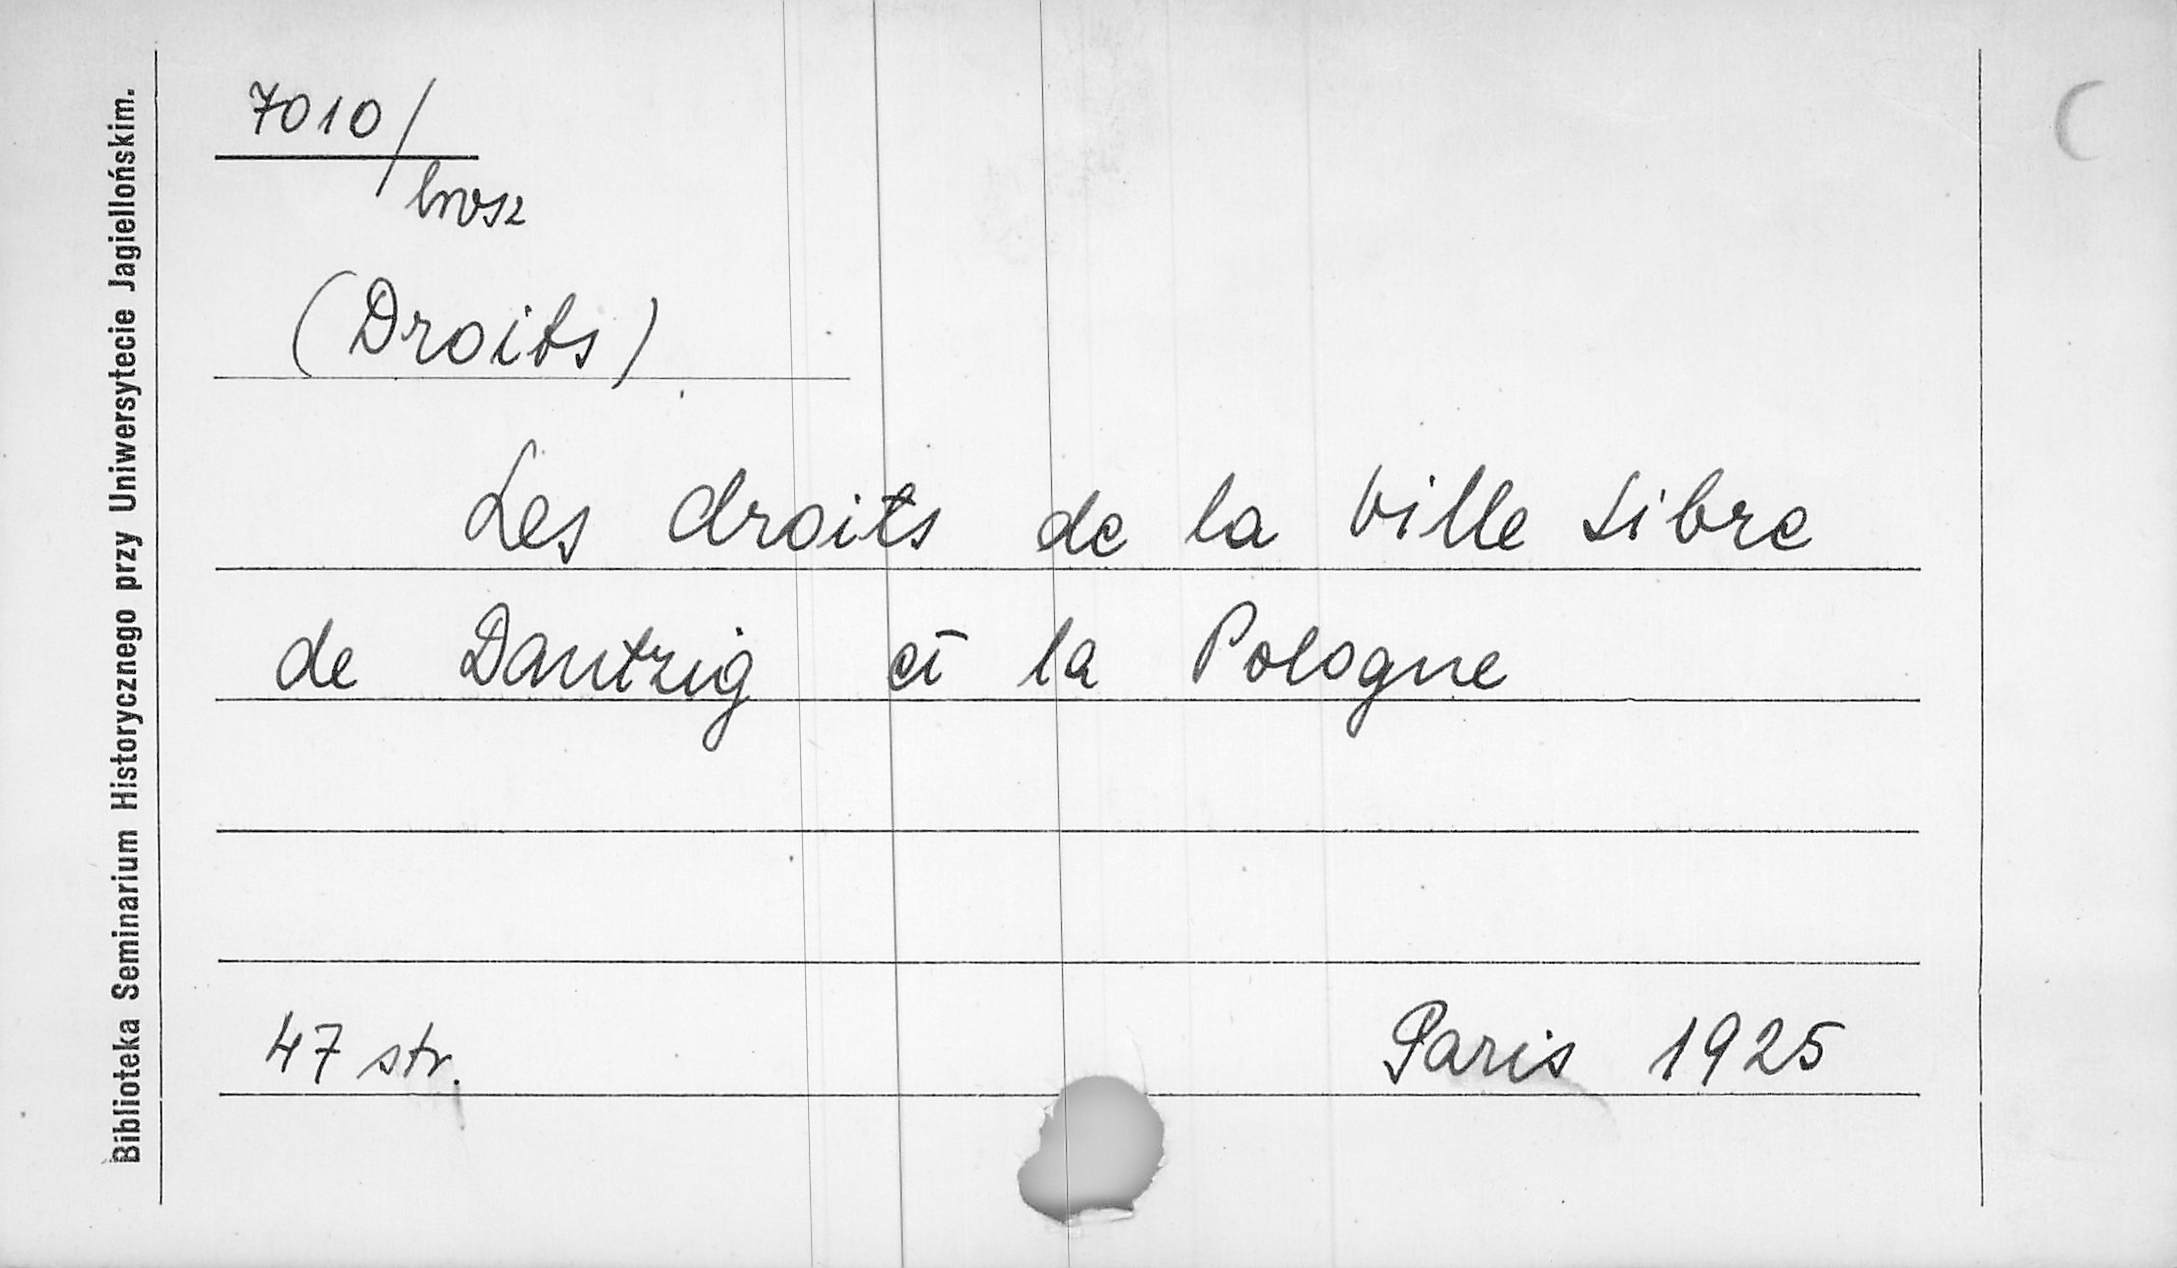 Biblioteka Seminarium Historycznego przy Uniwersytecie Jagiellońskim.
7010/
brosz
(Droits)
Les droits de la Ville Libre
de Dantzig et la Pologne
47 str.
Paris 1925